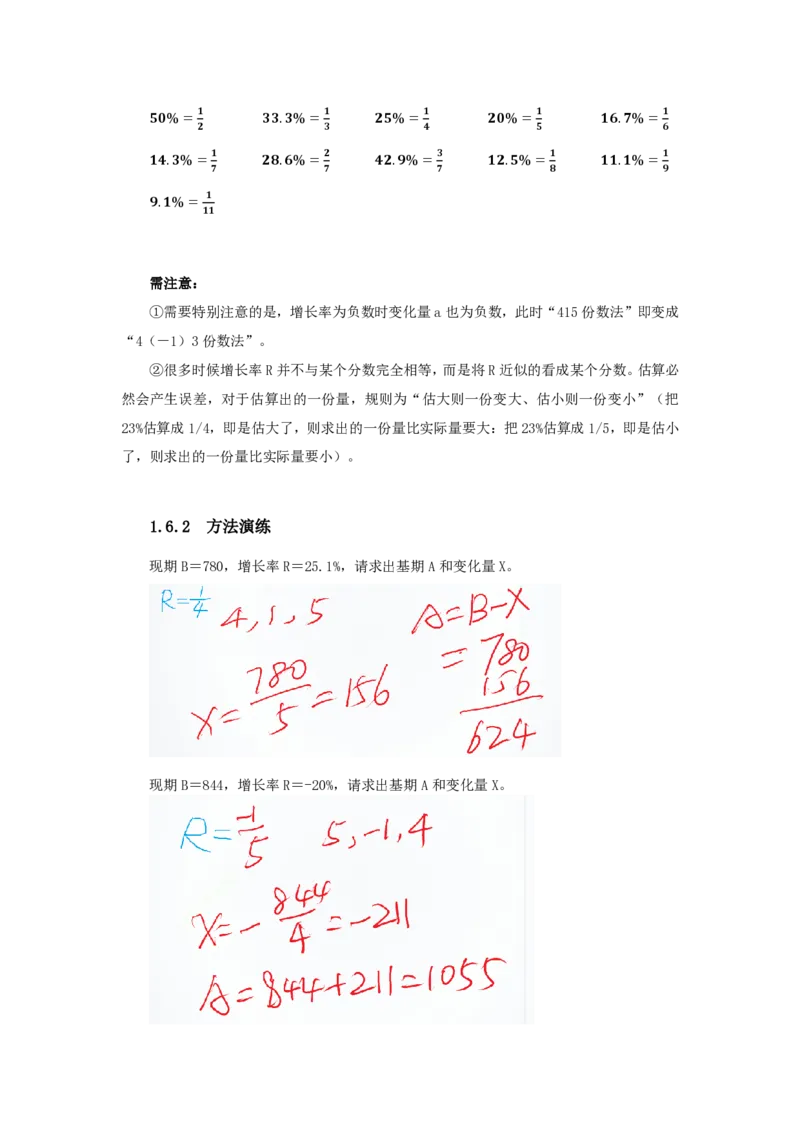 50% = 1/2 33.3% = 1/3 25% = 1/4 20% = 1/5 16.7% = 1/6
14.3% = 1/7 28.6% = 2/7 42.9% = 3/7 12.5% = 1/8 11.1% = 1/9
9.1% = 1/11
需注意：
①需要特别注意的是，增长率为负数时变化量a也为负数，此时“415份数法”即变成
“4（－1）3份数法”。
②很多时候增长率R并不与某个分数完全相等，而是将R近似的看成某个分数。估算必
然会产生误差，对于估算出的一份量，规则为“估大则一份变大、估小则一份变小”（把
23%估算成1/4，即是估大了，则求出的一份量比实际量要大：把23%估算成1/5，即是估小
了，则求出的一份量比实际量要小）。
1.6.2 方法演练
现期B＝780，增长率R＝25.1%，请求出基期A和变化量X。
R=1/4 4,1,5 A=B-X
X=780/5=156 =780
156
624
现期B＝844，增长率R＝-20%，请求出基期A和变化量X。
R=-1/5 5,-1,4
X=-844/4=-211
A=844+211=1055